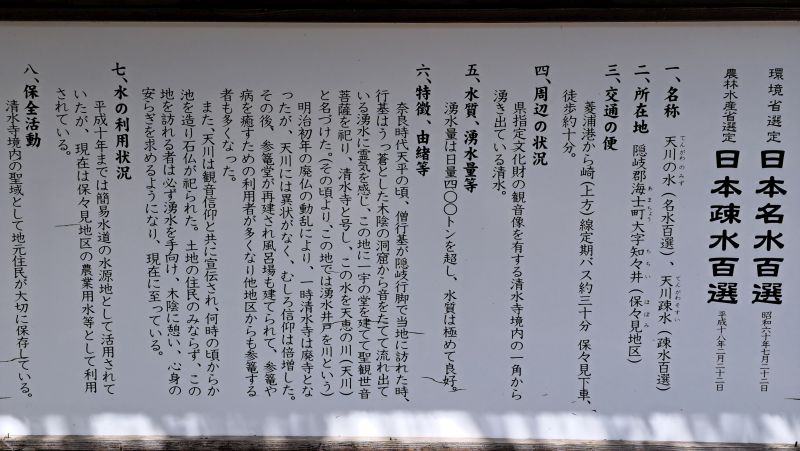 環境省選定 日本名水百選 昭和六十年七月二十二日
農林水産省選定 日本疏水百選 平成十八年二月二十二日
一、名称 天川の水（名水百選）、天川疏水（疏水百選）
てんがわのみず てんがわそすい
二、所在地 隠岐郡海士町大字知々井（保々見地区）
あまちょう ちちい ほぼみ
三、交通の便
菱浦港から崎（上方）線定期バス約三十分 保々見下車、
徒歩約十分。
四、周辺の状況
県指定文化財の観音像を有する清水寺境内の一角から
湧き出ている清水。
五、水質、湧水量等
湧水量は日量四〇〇トンを超し、水質は極めて良好。
六、特徴、由緒等
奈良時代天平の頃、僧行基が隠岐行脚で当地に訪れた時、
行基はうっ蒼とした木陰の洞窟から音をたてて流れ出て
いる湧水に霊気を感じ、この地に一宇の堂を建てて聖観世音
菩薩を祀り、清水寺と号し、この水を天恵の川（天川）
と名づけた。（その頃より、この地では湧水井戸を川という）
明治初年の廃仏の動乱により、一時清水寺は廃寺とな
ったが、天川には異状がなく、むしろ信仰は倍増した。
その後、参篭堂が再建され風呂場も建てられて、参篭や
病を癒すための利用者が多くなり他地区からも参篭する
者も多くなった。
また、天川は観音信仰と共に宣伝され、何時の頃からか
池を造り石仏が祀られた。土地の住民のみならず、この
地を訪れる者は必ず湧水を手向け、木陰に憩い、心身の
安らぎを求めるようになり、現在に至っている。
七、水の利用状況
平成十年までは簡易水道の水源地として活用されて
いたが、現在は保々見地区の農業用水等として利用
されている。
八、保全活動
清水寺境内の聖域として地元住民が大切に保存している。